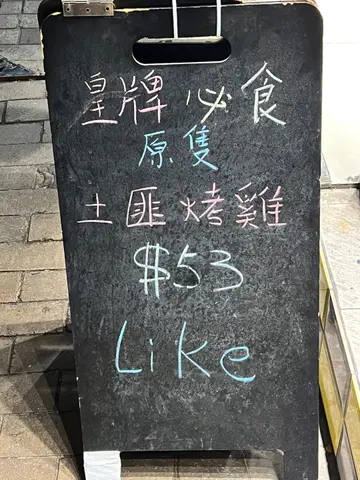 皇牌必食
原隻
土匪烤雞
$53
Like